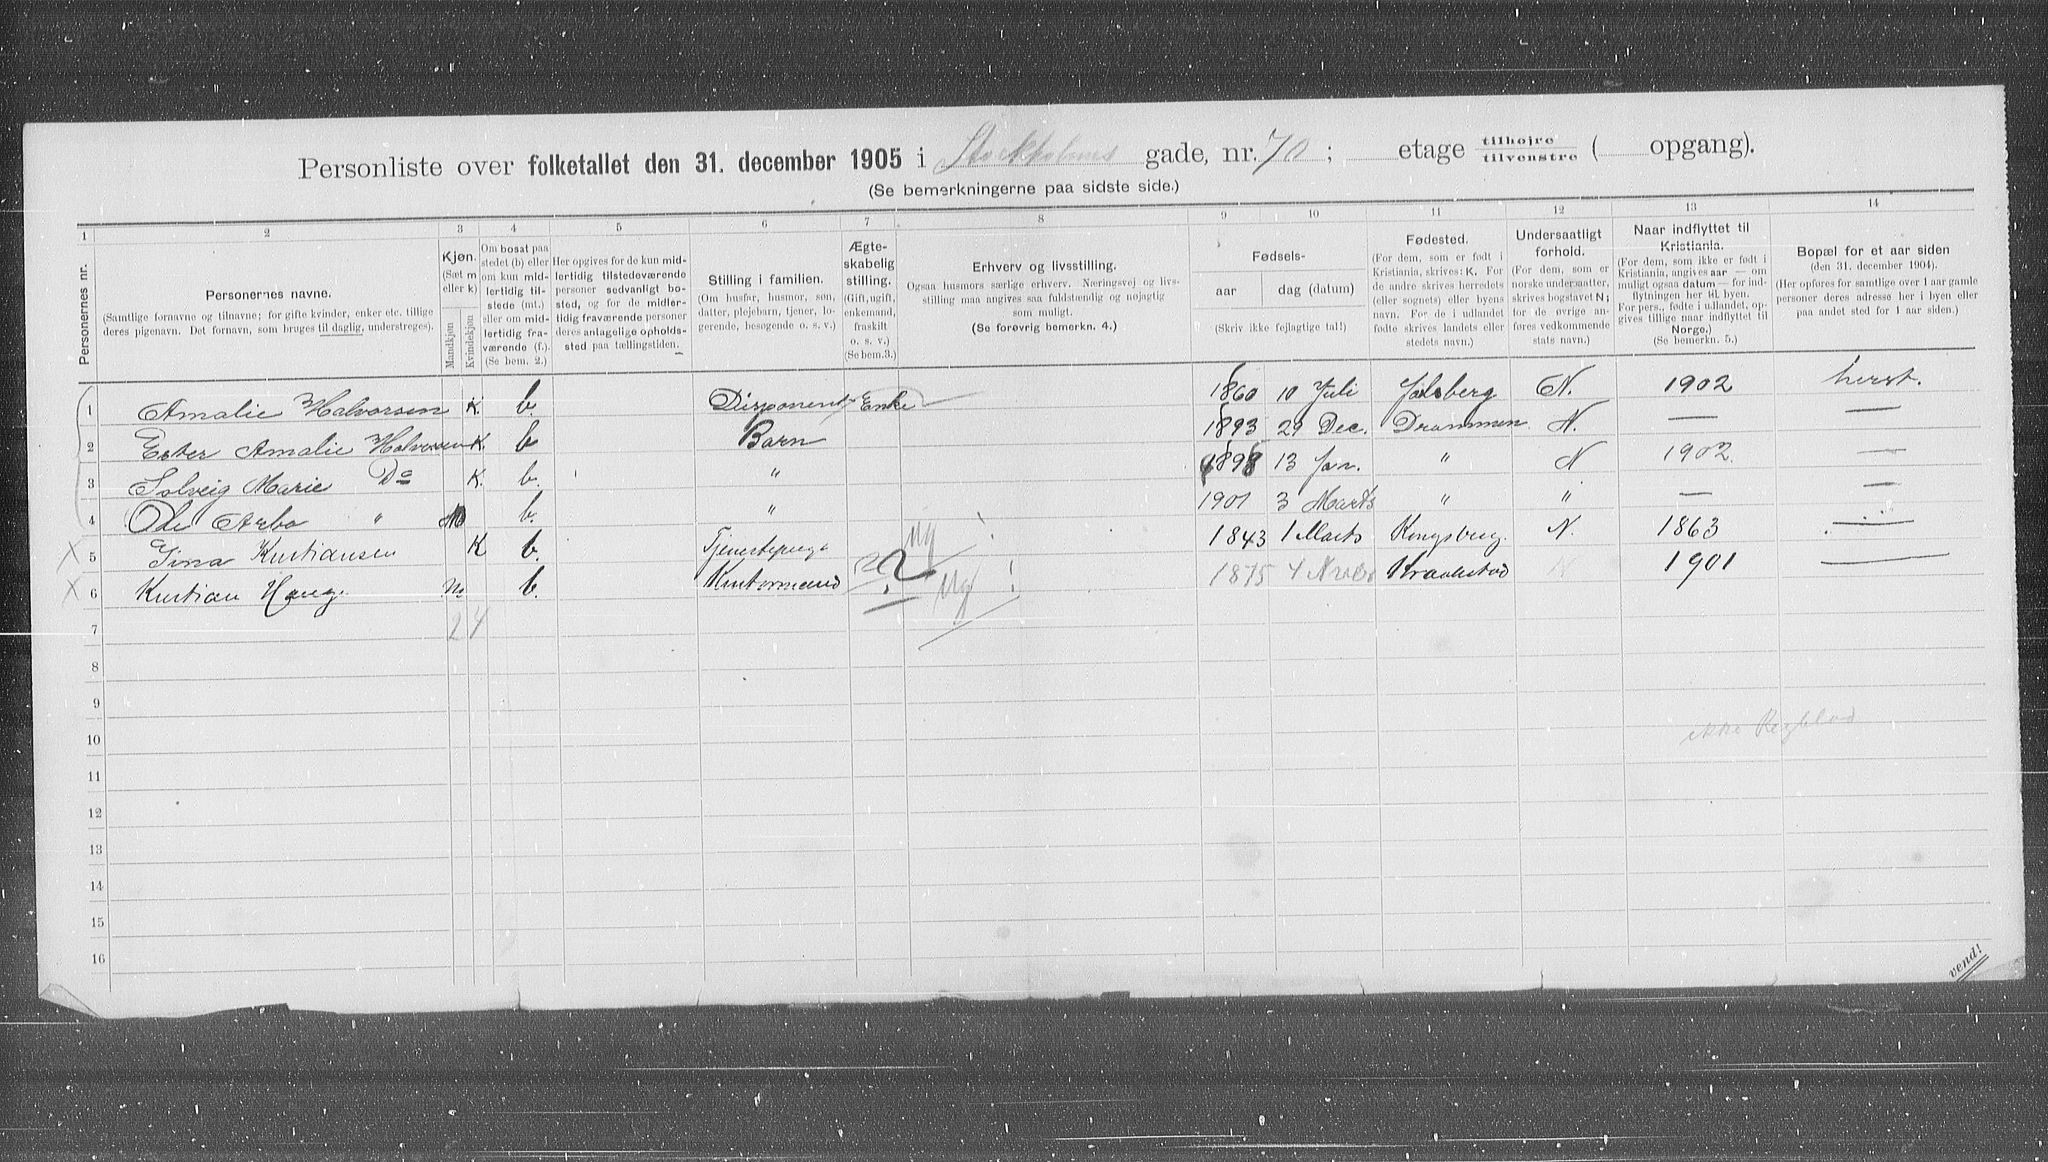 Personliste over folketallet den 31. december 1905 i Stockholms gade, nr. 70; etage tilhøjre tilvenstre ( opgang).
(Se bemerkningerne paa sidste side.)
1 2 3 4 5 6 7 8 9 10 11 12 13 14
Personernes nr.
Personernes navne.
(Samtlige fornavne og tilnavne; for gifte kvinder, enker etc. tillige
deres pigenavn. Det fornavn, som bruges til daglig, understreges).
Kjøn.
(Sæt m
eller k)
Mandkjøn
Kvindekjøn
Om bosat paa
stedet (b) eller
om kun mid-
lertidig til-
stede (mt.)
eller om mid-
lertidig fra-
værende (f.).
(Se bem. 2.)
Her opgives for de kun mid-
lertidig tilstedeværende
personer sedvanligt bo-
sted, og for de midler-
tidig fraværende personer
deres antagelige opholds-
sted paa tællingstiden.
Stilling i familien.
(Om husfar, husmor, søn,
datter, plejebarn, tjener, lo-
gerende, besøgende o. s. v.)
Ægte-
skabelig
stilling.
(Gift, ugift,
enkemand,
fraskilt
o. s. v.)
(Se bem.3.)
Erhverv og livsstilling.
Ogsaa husmors særlige erhverv. Næringsvej og livs-
stilling maa angives saa fuldstændig og nøjagtig
som muligt.
(Se forøvrig bemerkn. 4.)
Fødsels-
aar
dag (datum)
(Skriv ikke fejlagtige tal!)
Fødested.
(For dem, som er født i
Kristiania, skrives: K. For
de andre skrives herredets
(eller sognets) eller byens
navn. For de i udlandet
fødte skrives landets eller
stedets navn.)
Undersaatligt
forhold.
(For dem, som er
norske undersaatter,
skrives bogstavet N;
for de øvrige an-
føres vedkommende
stats navn.)
Naar indflyttet til
Kristiania.
(For dem, som ikke er født i
Kristiania, angives aar — om
muligt ogsaa datum — for ind-
flytningen her til byen.
For pers., fødte i udlandet, op-
gives tillige naar indflyttet til
Norge.)
(Se bemerkn. 5.)
Bopæl for et aar siden
(den 31. december 1904).
(Her opføres for samtlige over 1 aar gamle
personer deres adresse her i byen eller
paa andet sted for 1 aar siden.)
1 Amalie Halvorsen K. b. Disponent Enke 1860 10 Juli N. 1902 herst.
2 Ester Amalie Halvorsen K. b Barn 1893 29 Dec. Drammen N. —
3 Solveig Marie Do K. b. " 1898 13 Jan. " N 1902. —
4 Ole Arbo " M b. " 1901 3 Marts " " — —
X 5 Gina Kristiansen K b. Tjenestepige ug ! 1843 1 Marts Kongsberg. N. 1863 —
X 6 Kristian Haug. m. b. Kontormand ? ug ! 1875 4 Novbr Kraakstad 1901 —
7 2 4
8
9
10 ikke
11
12
13
14
15
16
vend!